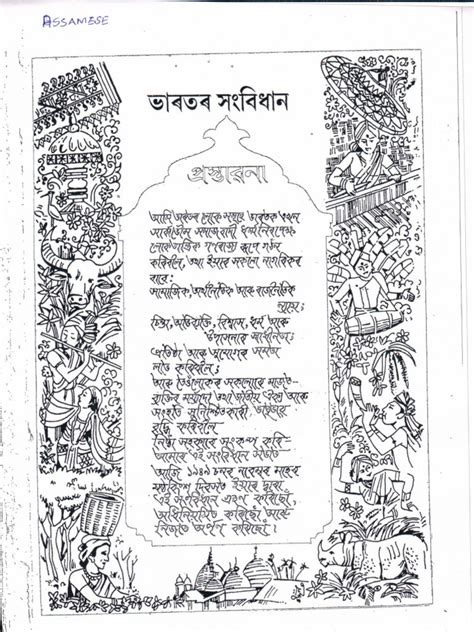 ASSAMESE
ভাৰতৰ সংবিধান
প্ৰস্তাৱনা
আমি ভাৰতৰ লোকে ভাৰতক এখন
সাৰ্বভৌম সমাজবাদী ধৰ্ম নিৰপেক্ষ
গণৰাজ্য ৰূপে গঠন
কৰিবলৈ, তথা ইয়াৰ সকলো নাগৰিকৰ
বাবে:
সামাজিক, অৰ্থনৈতিক আৰু ৰাজনৈতিক
ন্যায়;
চিন্তা, অভিব্যক্তি, বিশ্বাস, ধৰ্ম আৰু
উপাসনাৰ স্বাধীনতা;
প্ৰতিষ্ঠা আৰু
কৰিবলৈ;
আৰু তেওঁলোকৰ সকলোৰে মাজত
মৰ্যাদা তথা জাতীয় ঐক্য আৰু
সংহতি
বৃদ্ধি কৰিবলৈ
সংকল্প কৰি
আমাৰ এই সংবিধান সভাত
আজি ১৯৪৯ চনৰ নৱেম্বৰ মাহৰ
দিনত ইয়াৰ দ্বাৰা
এই সংবিধান গ্ৰহণ কৰিছো,
অধিনিয়মিত কৰিছো, আৰু
নিজকে অৰ্পণ কৰিছো।